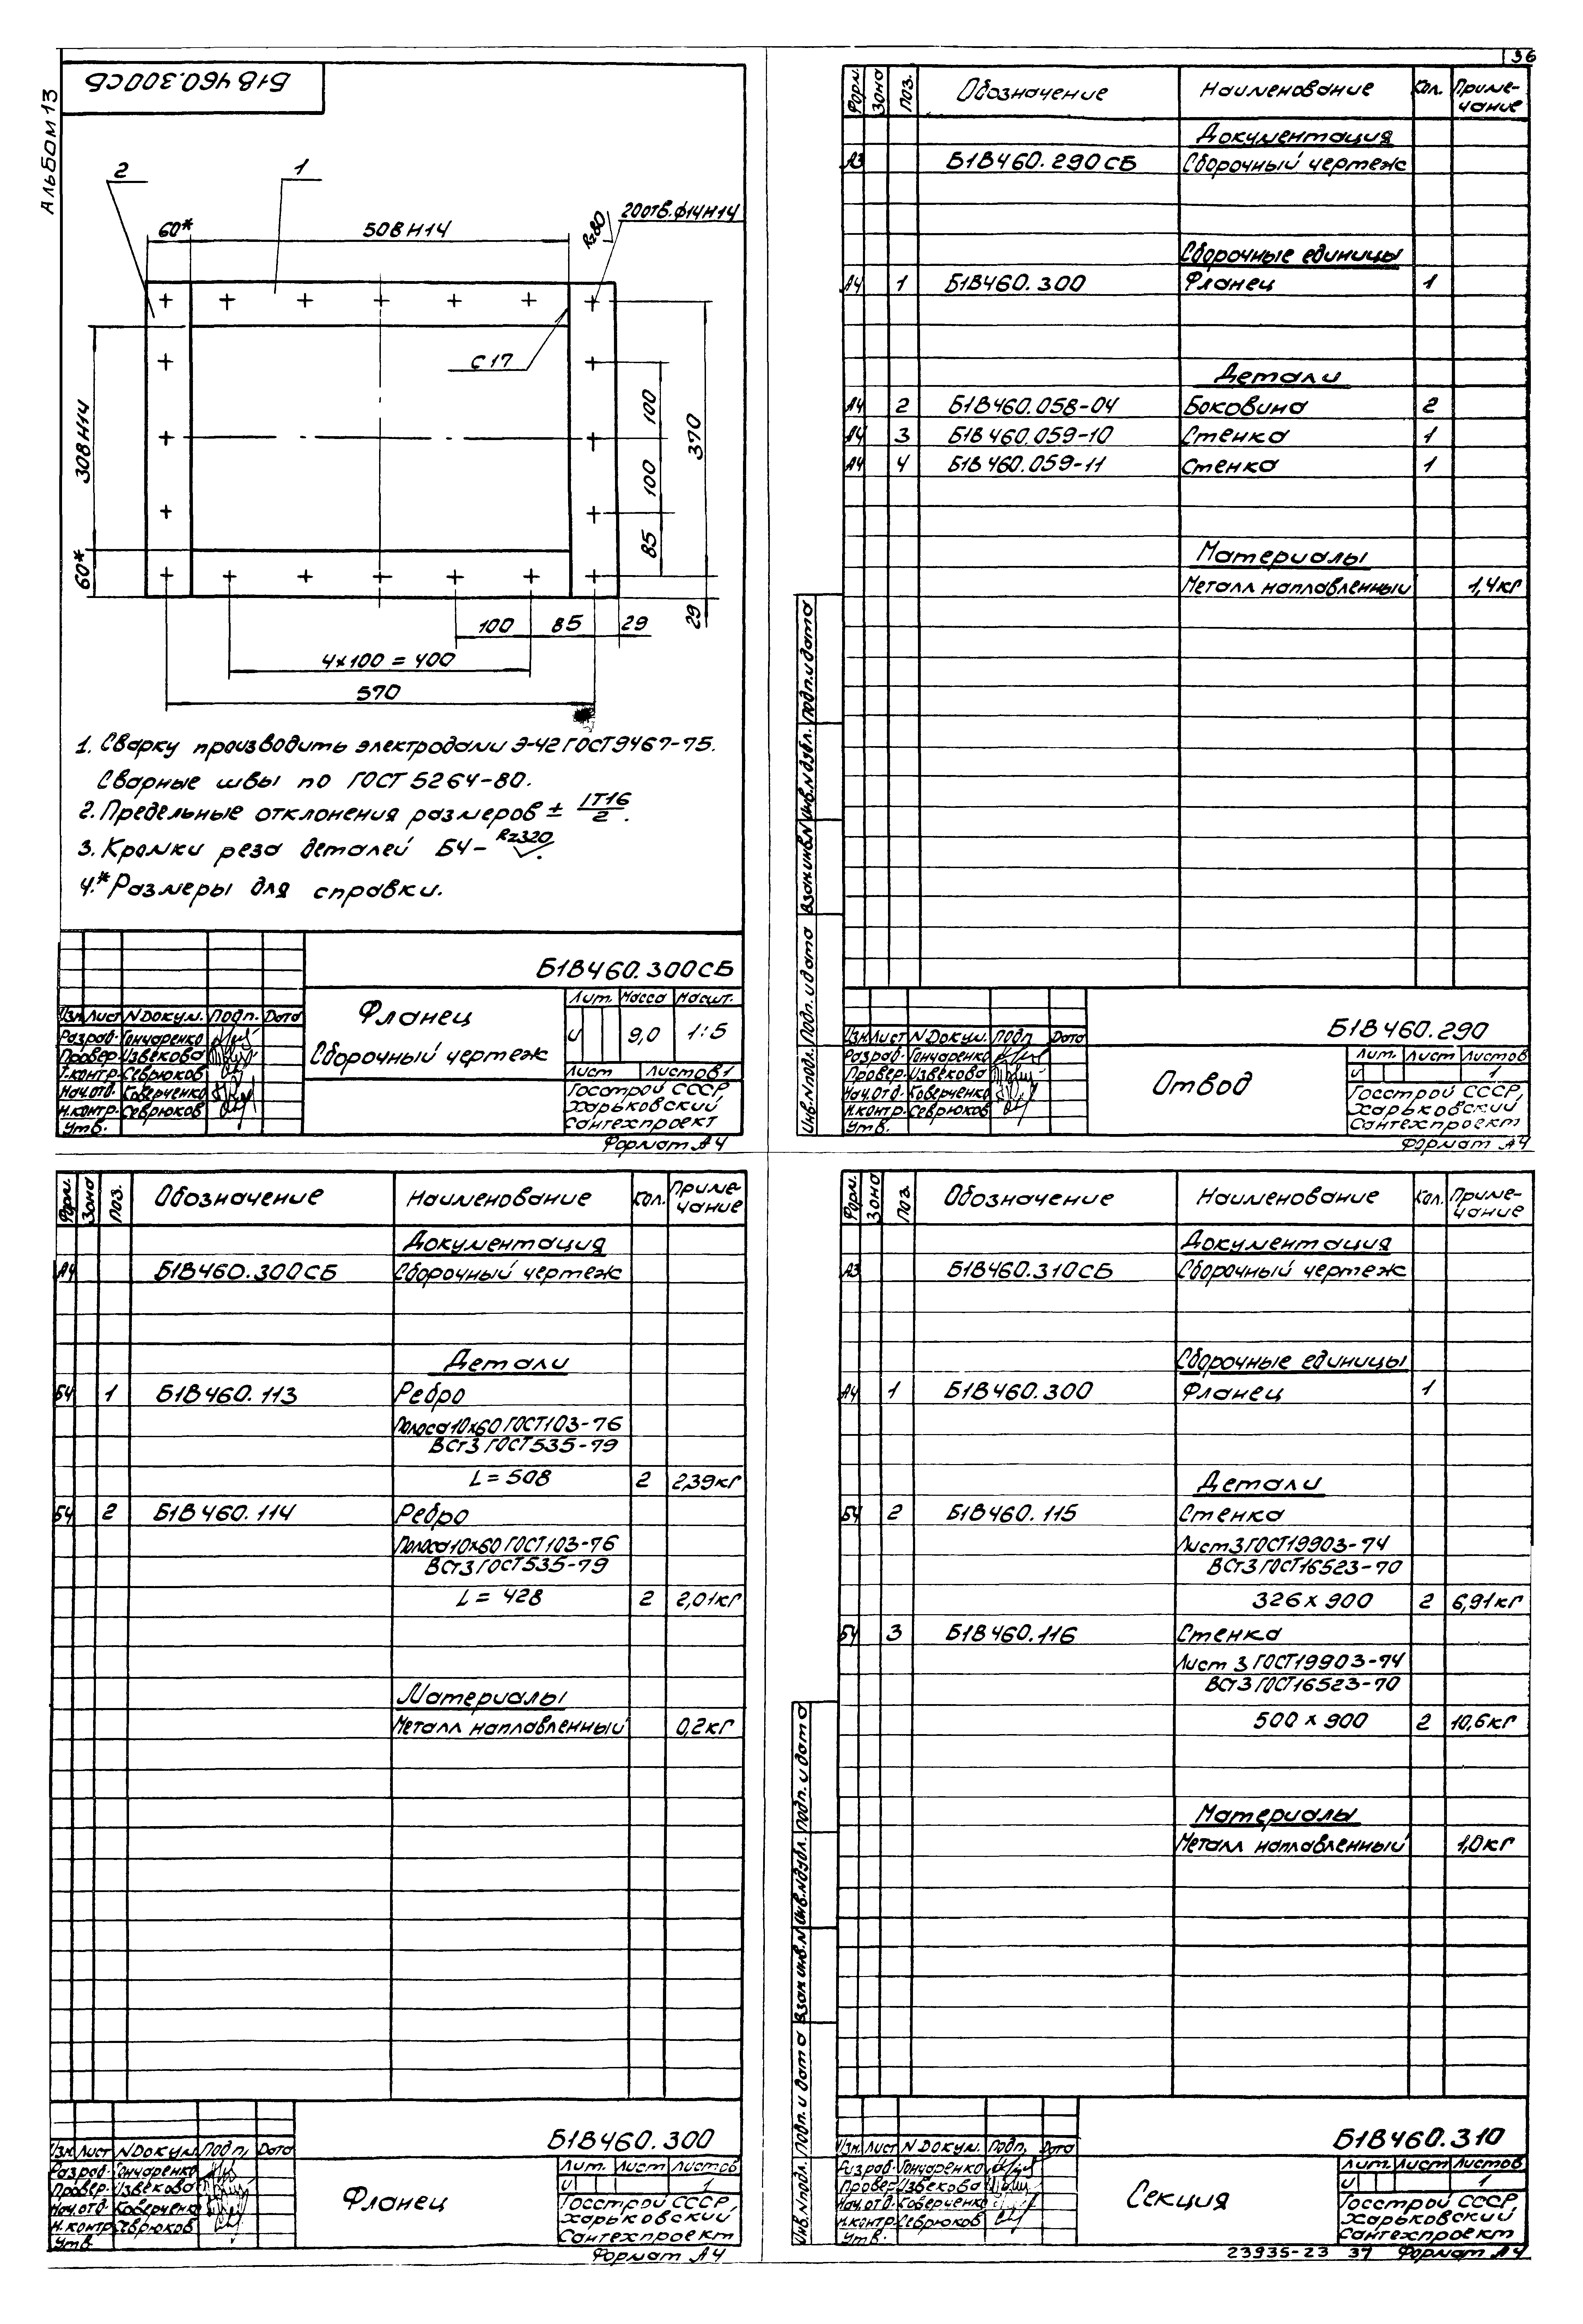 36
Альбом 13
Б1В460.300СБ
2
1
20отв.ф14Н14
Rz80
60*
508Н14
С17
308Н14
60*
100
100
85
370
29
100 85 29
4х100 = 400
570
1. Сварку производить электродами Э-42 ГОСТ 9467-75.
Сварные швы по ГОСТ 5264-80.
2. Предельные отклонения размеров ± IT16/2.
3. Кромки реза деталей БЧ- Rz320.
4.* Размеры для справки.
Б1В460.300СБ
Фланец
Сборочный чертеж
Лит. Масса Масшт.
И 9,0 1:5
Лист Листов 1
Изм. Лист N Докум. Подп. Дата
Разраб. Гончаренко
Провер. Извекова
Т.контр. Севрюков
Нач.отд. Коверченко
Н.контр. Севрюков
Утв.
Госстрой СССР,
Харьковский
Сантехпроект
Формат А4
Форм. Зона Поз. Обозначение Наименование Кол. Приме-
чание
Документация
А3 Б1В460.290СБ Сборочный чертеж
Сборочные единицы
А4 1 Б1В460.300 Фланец 1
Детали
А4 2 Б1В460.058-04 Боковина 2
А4 3 Б1В460.059-10 Стенка 1
А4 4 Б1В460.059-11 Стенка 1
Материалы
Металл наплавленный 1,4кг
Инв.N подл. Подп. и дата Взам.инв.N Инв.N дубл. Подп. и дата
Б1В460.290
Изм. Лист N Докум. Подп Дата
Разраб. Гончаренко
Провер. Извекова
Нач.отд. Коверченко
Н.контр. Севрюков
Утв.
Отвод
Лит. Лист Листов
И 1
Госстрой СССР,
Харьковский
Сантехпроект
Формат А4
Форм. Зона Поз. Обозначение Наименование Кол. Приме-
чание
Документация
А4 Б1В460.300СБ Сборочный чертеж
Детали
БЧ 1 Б1В460.113 Ребро
Полоса 10х60 ГОСТ103-76
ВСт3 ГОСТ535-79
L = 508 2 2,39кг
БЧ 2 Б1В460.114 Ребро
Полоса 10х60 ГОСТ103-76
ВСт3 ГОСТ535-79
L = 428 2 2,01кг
Материалы
Металл наплавленный 0,2кг
Б1В460.300
Изм. Лист N Докум. Подп. Дата
Разраб. Гончаренко
Провер. Извекова
Нач.отд. Коверченко
Н.контр. Севрюков
Утв.
Фланец
Лит. Лист Листов
И 1
Госстрой СССР,
Харьковский
Сантехпроект
Формат А4
Форм. Зона Поз. Обозначение Наименование Кол. Приме-
чание
Документация
А3 Б1В460.310СБ Сборочный чертеж
Сборочные единицы
А4 1 Б1В460.300 Фланец 1
Детали
БЧ 2 Б1В460.115 Стенка
Лист 3 ГОСТ19903-74
ВСт3 ГОСТ16523-70
326 х 900 2 6,91кг
БЧ 3 Б1В460.116 Стенка
Лист 3 ГОСТ19903-74
ВСт3 ГОСТ16523-70
500 х 900 2 10,6кг
Материалы
Металл наплавленный 1,0кг
Инв.N подл. Подп. и дата Взам.инв.N Инв.N дубл. Подп. и дата
Б1В460.310
Изм. Лист N Докум. Подп. Дата
Разраб. Гончаренко
Провер. Извекова
Нач.отд. Коверченко
Н.контр. Севрюков
Утв.
Секция
Лит. Лист Листов
И 1
Госстрой СССР,
Харьковский
Сантехпроект
23935-23 37 Формат А4